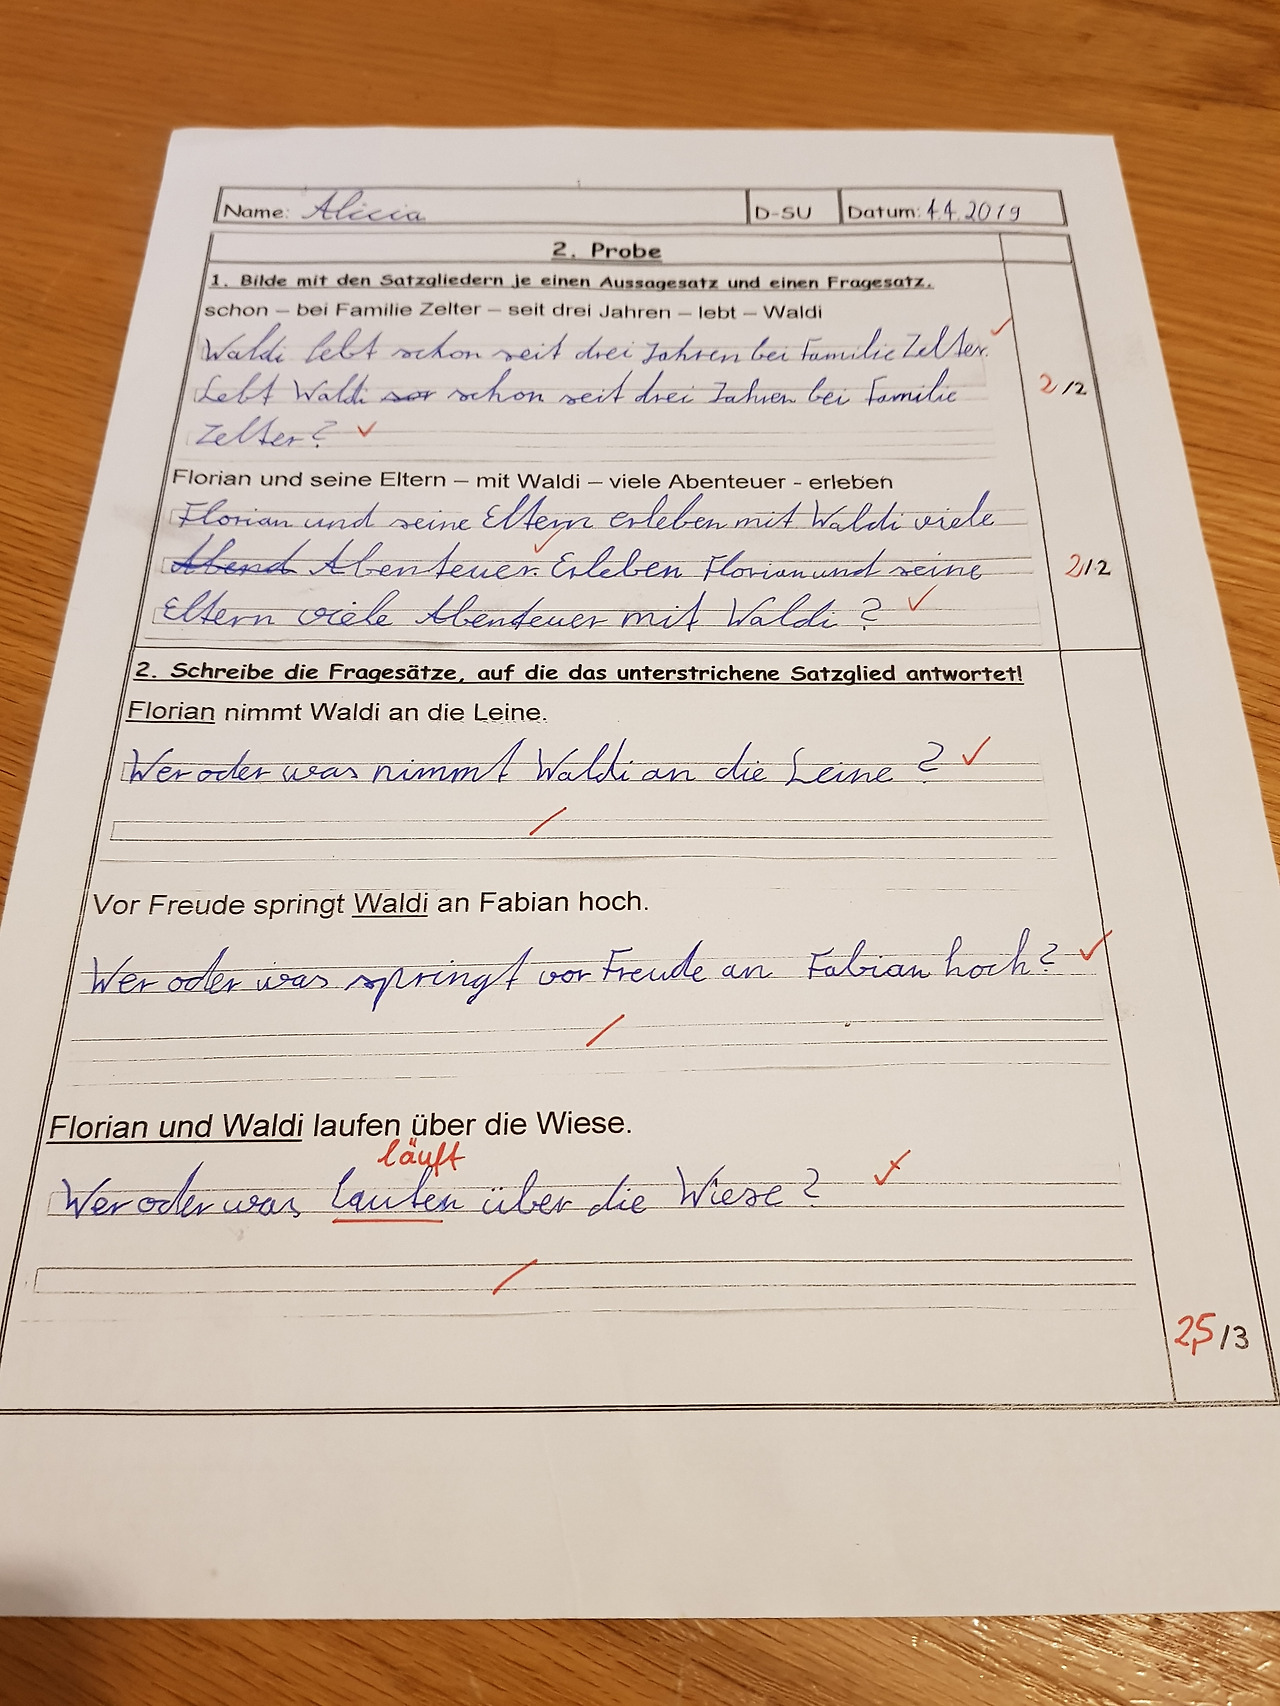 Name: Alicia D-SU Datum: 4.4.2019
2. Probe
1. Bilde mit den Satzgliedern je einen Aussagesatz und einen Fragesatz.
schon – bei Familie Zelter – seit drei Jahren – lebt – Waldi
Waldi lebt schon seit drei Jahren bei Familie Zelter. ✓
Lebt Waldi sor schon seit drei Jahren bei Familie 2/2
Zelter? ✓
Florian und seine Eltern – mit Waldi – viele Abenteuer - erleben
Florian und seine Eltern erleben mit Waldi viele
Abend Abenteuer. ✓ Erleben Florian und seine 2/2
Eltern viele Abenteuer mit Waldi? ✓
2. Schreibe die Fragesätze, auf die das unterstrichene Satzglied antwortet!
Florian nimmt Waldi an die Leine.
Wer oder was nimmt Waldi an die Leine? ✓
Vor Freude springt Waldi an Fabian hoch.
Wer oder was springt vor Freude an Fabian hoch? ✓
Florian und Waldi laufen über die Wiese.
läuft
Wer oder was laufen über die Wiese? ✓
2,5/3